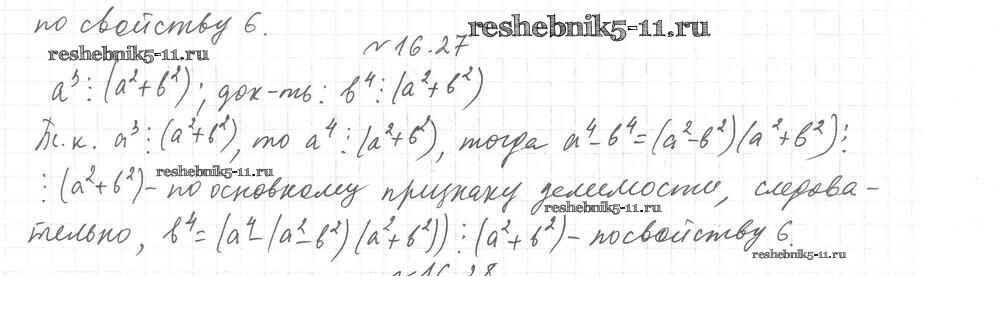 по свойству 6.
reshebnik5-11.ru
reshebnik5-11.ru
№16.27
a³⋮(a²+b²); док-ть: b⁴⋮(a²+b²)
Т.к. a³⋮(a²+b²), то a⁴⋮(a²+b²), тогда a⁴-b⁴=(a²-b²)(a²+b²)⋮
reshebnik5-11.ru
⋮(a²+b²)- по основному признаку делимости, следова-
reshebnik5-11.ru
тельно, b⁴=(a⁴-(a²-b²)(a²+b²))⋮(a²+b²)- по свойству 6.
reshebnik5-11.ru
№16.28